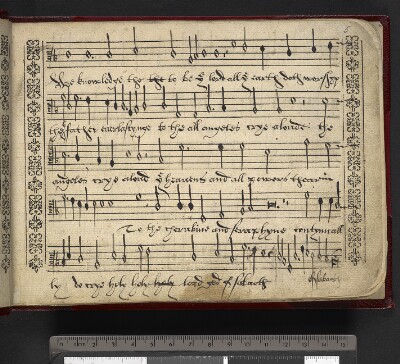 We knowledge the to be ye lord all ye earth doth worship
the father everlastynge to the all angeles crye aloude the
angeles crye aloud ye heavens and all powers therein
To the cherubine and seraphyne contynuall
ly do crye holy holy holy lord god of sabaoth